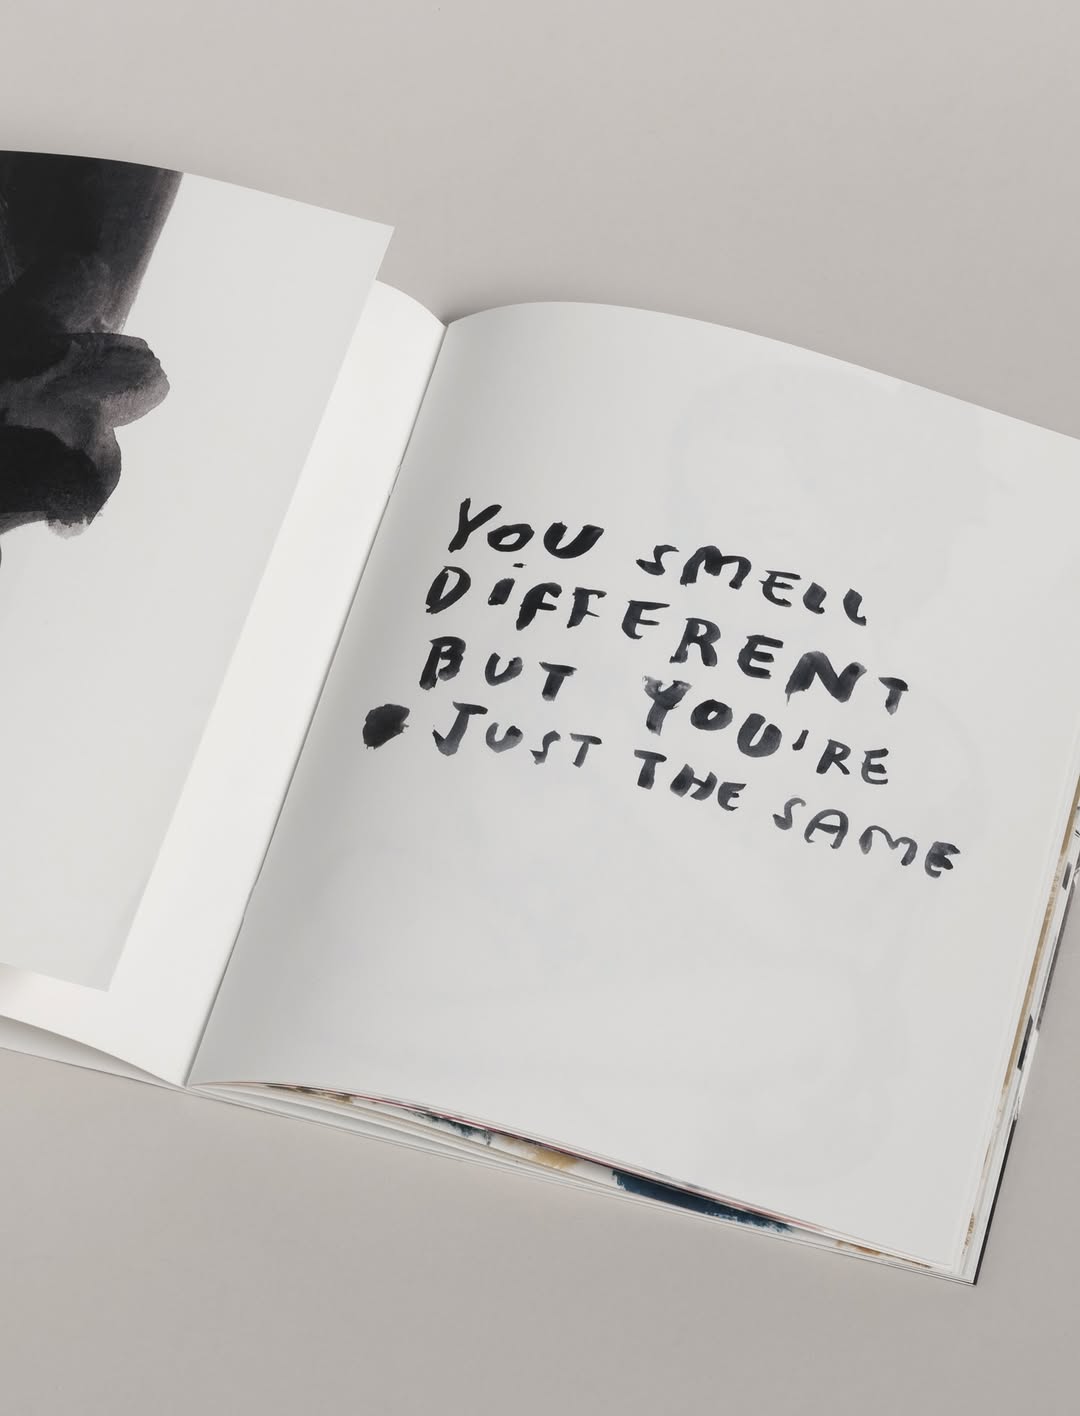 YOU SMELL
DiFFERENT
BUT YOU'RE
JUST THE SAME